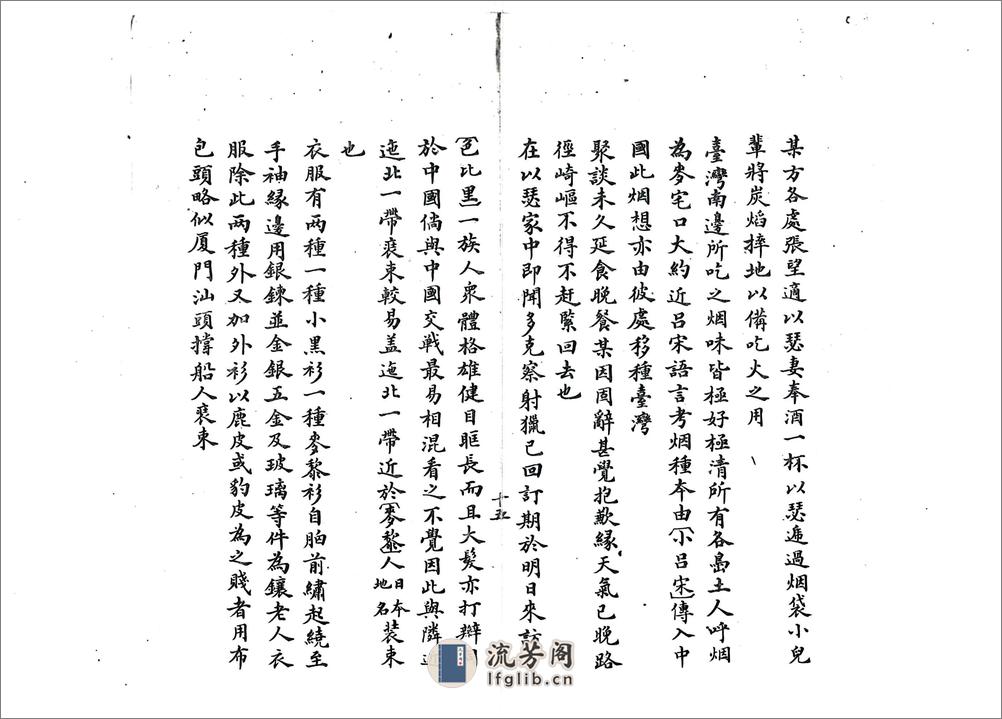 某方各處張望適以瑟妻奉酒一杯以瑟遞過烟袋小兒
輩將炭焰摔地以備吃火之用
臺灣南邊所吃之烟味皆極好極清所有各島土人呼烟
為麥宅口大約近呂宋語言考烟種本由小呂宋傳入中
國此烟想亦由彼處移種臺灣
聚談未久延食晚餐某因固辭甚覺抱歉緣天氣已晚路
徑崎嶇不得不赶緊回去也
在以瑟家中即聞多克察射獵已回訂期於明日來訪
十五
色比里一族人衆體格雄健目眶長而且大髮亦打辮
於中國倘與中國交戰最易相混看之不覺因此與隣近
迤北一帶裝束較易盖迤北一帶近於麥黎人日本地名裝束
也
衣服有兩種一種小黑衫一種麥黎衫自胸前繡起繞至
手袖緣邊用銀鍊並金銀五金及玻璃等件為鑲老人衣
服除此两種外又加外衫以鹿皮或豹皮為之賤者用布
包頭略似厦門汕頭撐船人裝束
流芳阁
lfglib.cn